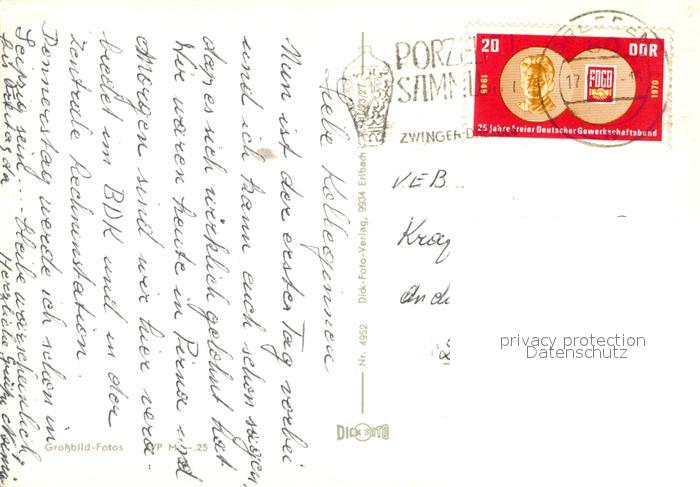 Liebe Kolleginnen
Nun ist der erster Tag vorbei
und ich kann euch schon sagen,
dass es sich wirklich gelohnt hat
Wir waren heute in Pirna und
Morgen sind wir hier vera-
bredet im BDK und in der
Zentrale Rechnenstation.
Donnerstag werde ich schon in
Leipzig sein... bleibe warscheinlich
bis Freitag da
Herzliche Grüße
Großbild-Fotos
VP M -.25
Nr. 4952 Dick-Foto-Verlag, 9934 Erlbach
DICK FOTO
PORZEL
SAMML
ZWINGER-D
20 DDR
1945
1970
FDGB
25 Jahre Freier Deutscher Gewerkschaftsbund
17
V.E.B.
privacy protection
Datenschutz